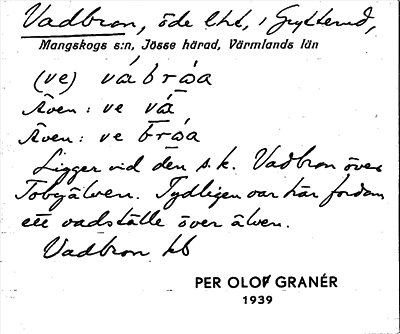 Vadbron, öde lht, i Grytterud,
Mangskogs s:n, Jösse härad, Värmlands län
(ve) våbròa
Även: ve vå
Även: ve bròa
Ligger vid den s.k. Vadbron över
Tobyälven. Tydligen var här fordom
ett vadställe över älven.
Vadbron kb
PER OLOF GRANÉR
1939